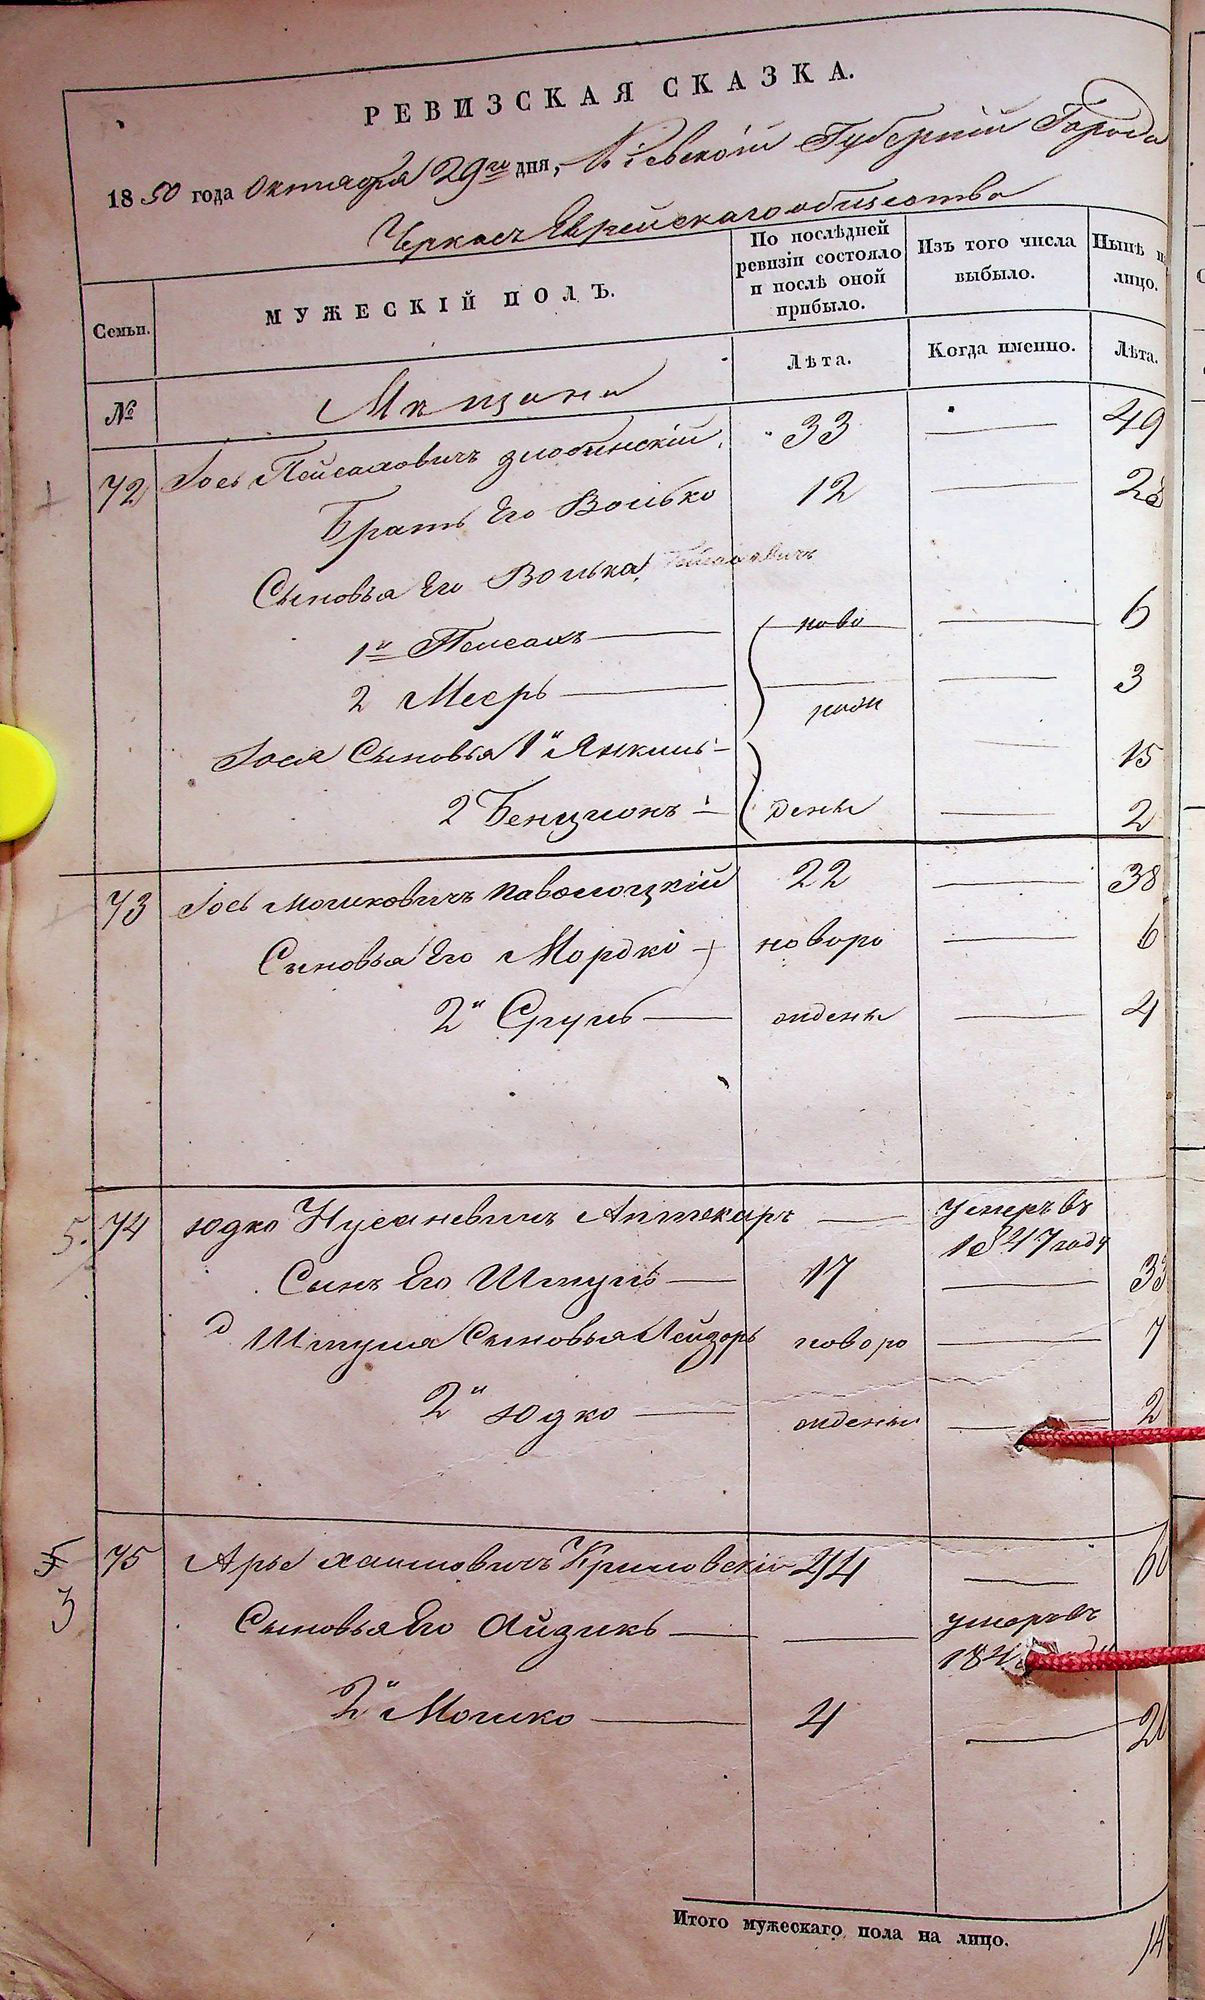 РЕВИЗСКАЯ СКАЗКА.
1850 года Октября 29го дня, Кіевской Губерніи Города
Черкасъ Еврейскаго общества
Семьи.
МУЖЕСКІЙ ПОЛЪ.
По послѣдней ревизіи состояло и послѣ оной прибыло.
Изъ того числа выбыло.
Нынѣ н лицо.
Лѣта.
Когда именно.
Лѣта.
№
Мѣщане
72 Іось Пейсаховичъ Злобинскій 33 — 49
Братъ Его Волько 12 — 28
Сыновья Его Волька Пейсаховичъ
1й Пейсахъ — ново — 6
2 Мееръ — рож — 3
Іося Сыновья 1й Янкель — 15
2 Бенционъ — дены — 2
73 Іось Мошковичъ Паволоцкій 22 — 38
Сыновья Его Мордко новоро — 6
2й Сруль — ждены — 4
5. 74 Юдко Нусиневичъ Аптекаръ — умеръ въ
1847 году
Сынъ Его Шмуль — 17 — 33
Шмуля Сыновья Лейзоръ новоро — 7
2й Юдко — ждены — 2
75 Арье Хаимовичъ Криловскій 44 — 60
3
Сыновья Его Айзикъ — — умеръ въ
184
2й Мошко — 4 — 20
Итого мужескаго пола на лицо. 14